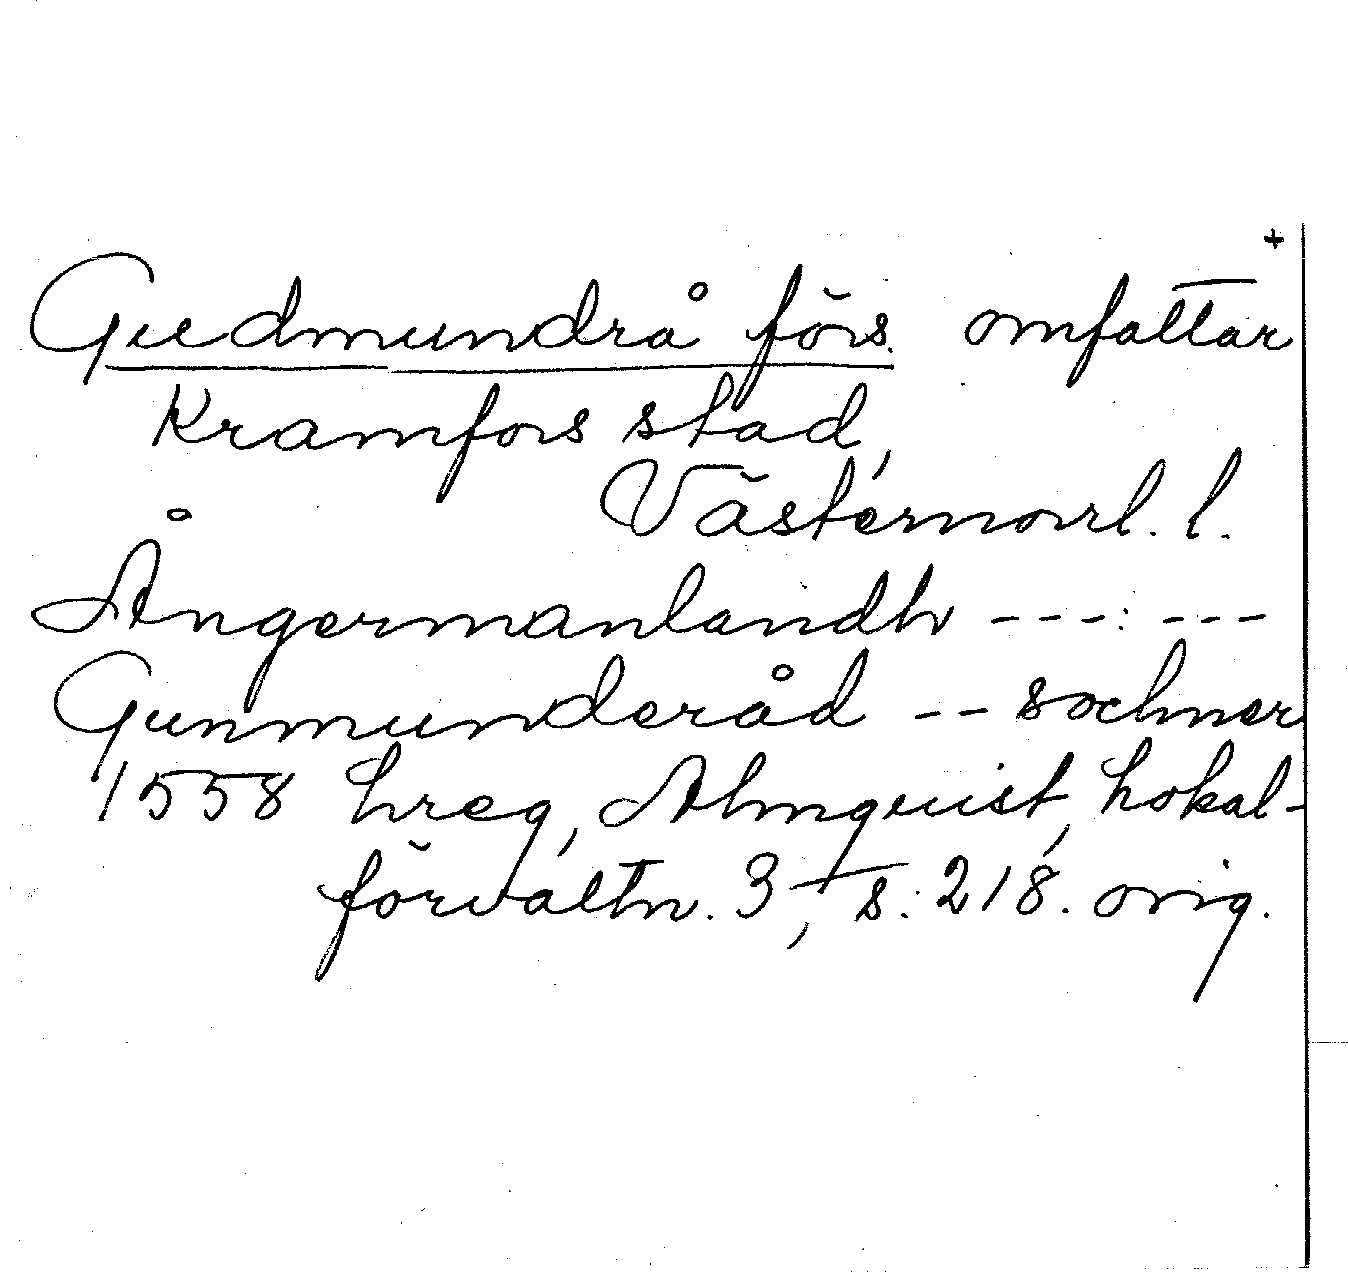 +
Gudmundrå förs. omfattar
Kramfors stad,
Västernorrl. l.
Ångermanlandh ---:---
Gunmunderåd -- sochner
1558 hreg, Almquist, Lokal-
förvaltn. 3, s. 218. orig.